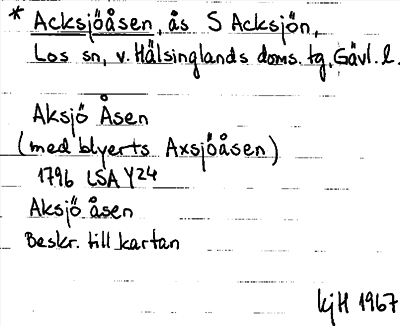 * Acksjöåsen, ås S Acksjön,
Los sn, v. Hälsinglands doms. tg, Gävl. l.
Aksjö Åsen
(med blyerts Axsjöåsen)
1796 LSA Y24
Aksjö åsen
Beskr. till kartan
kjH 1967